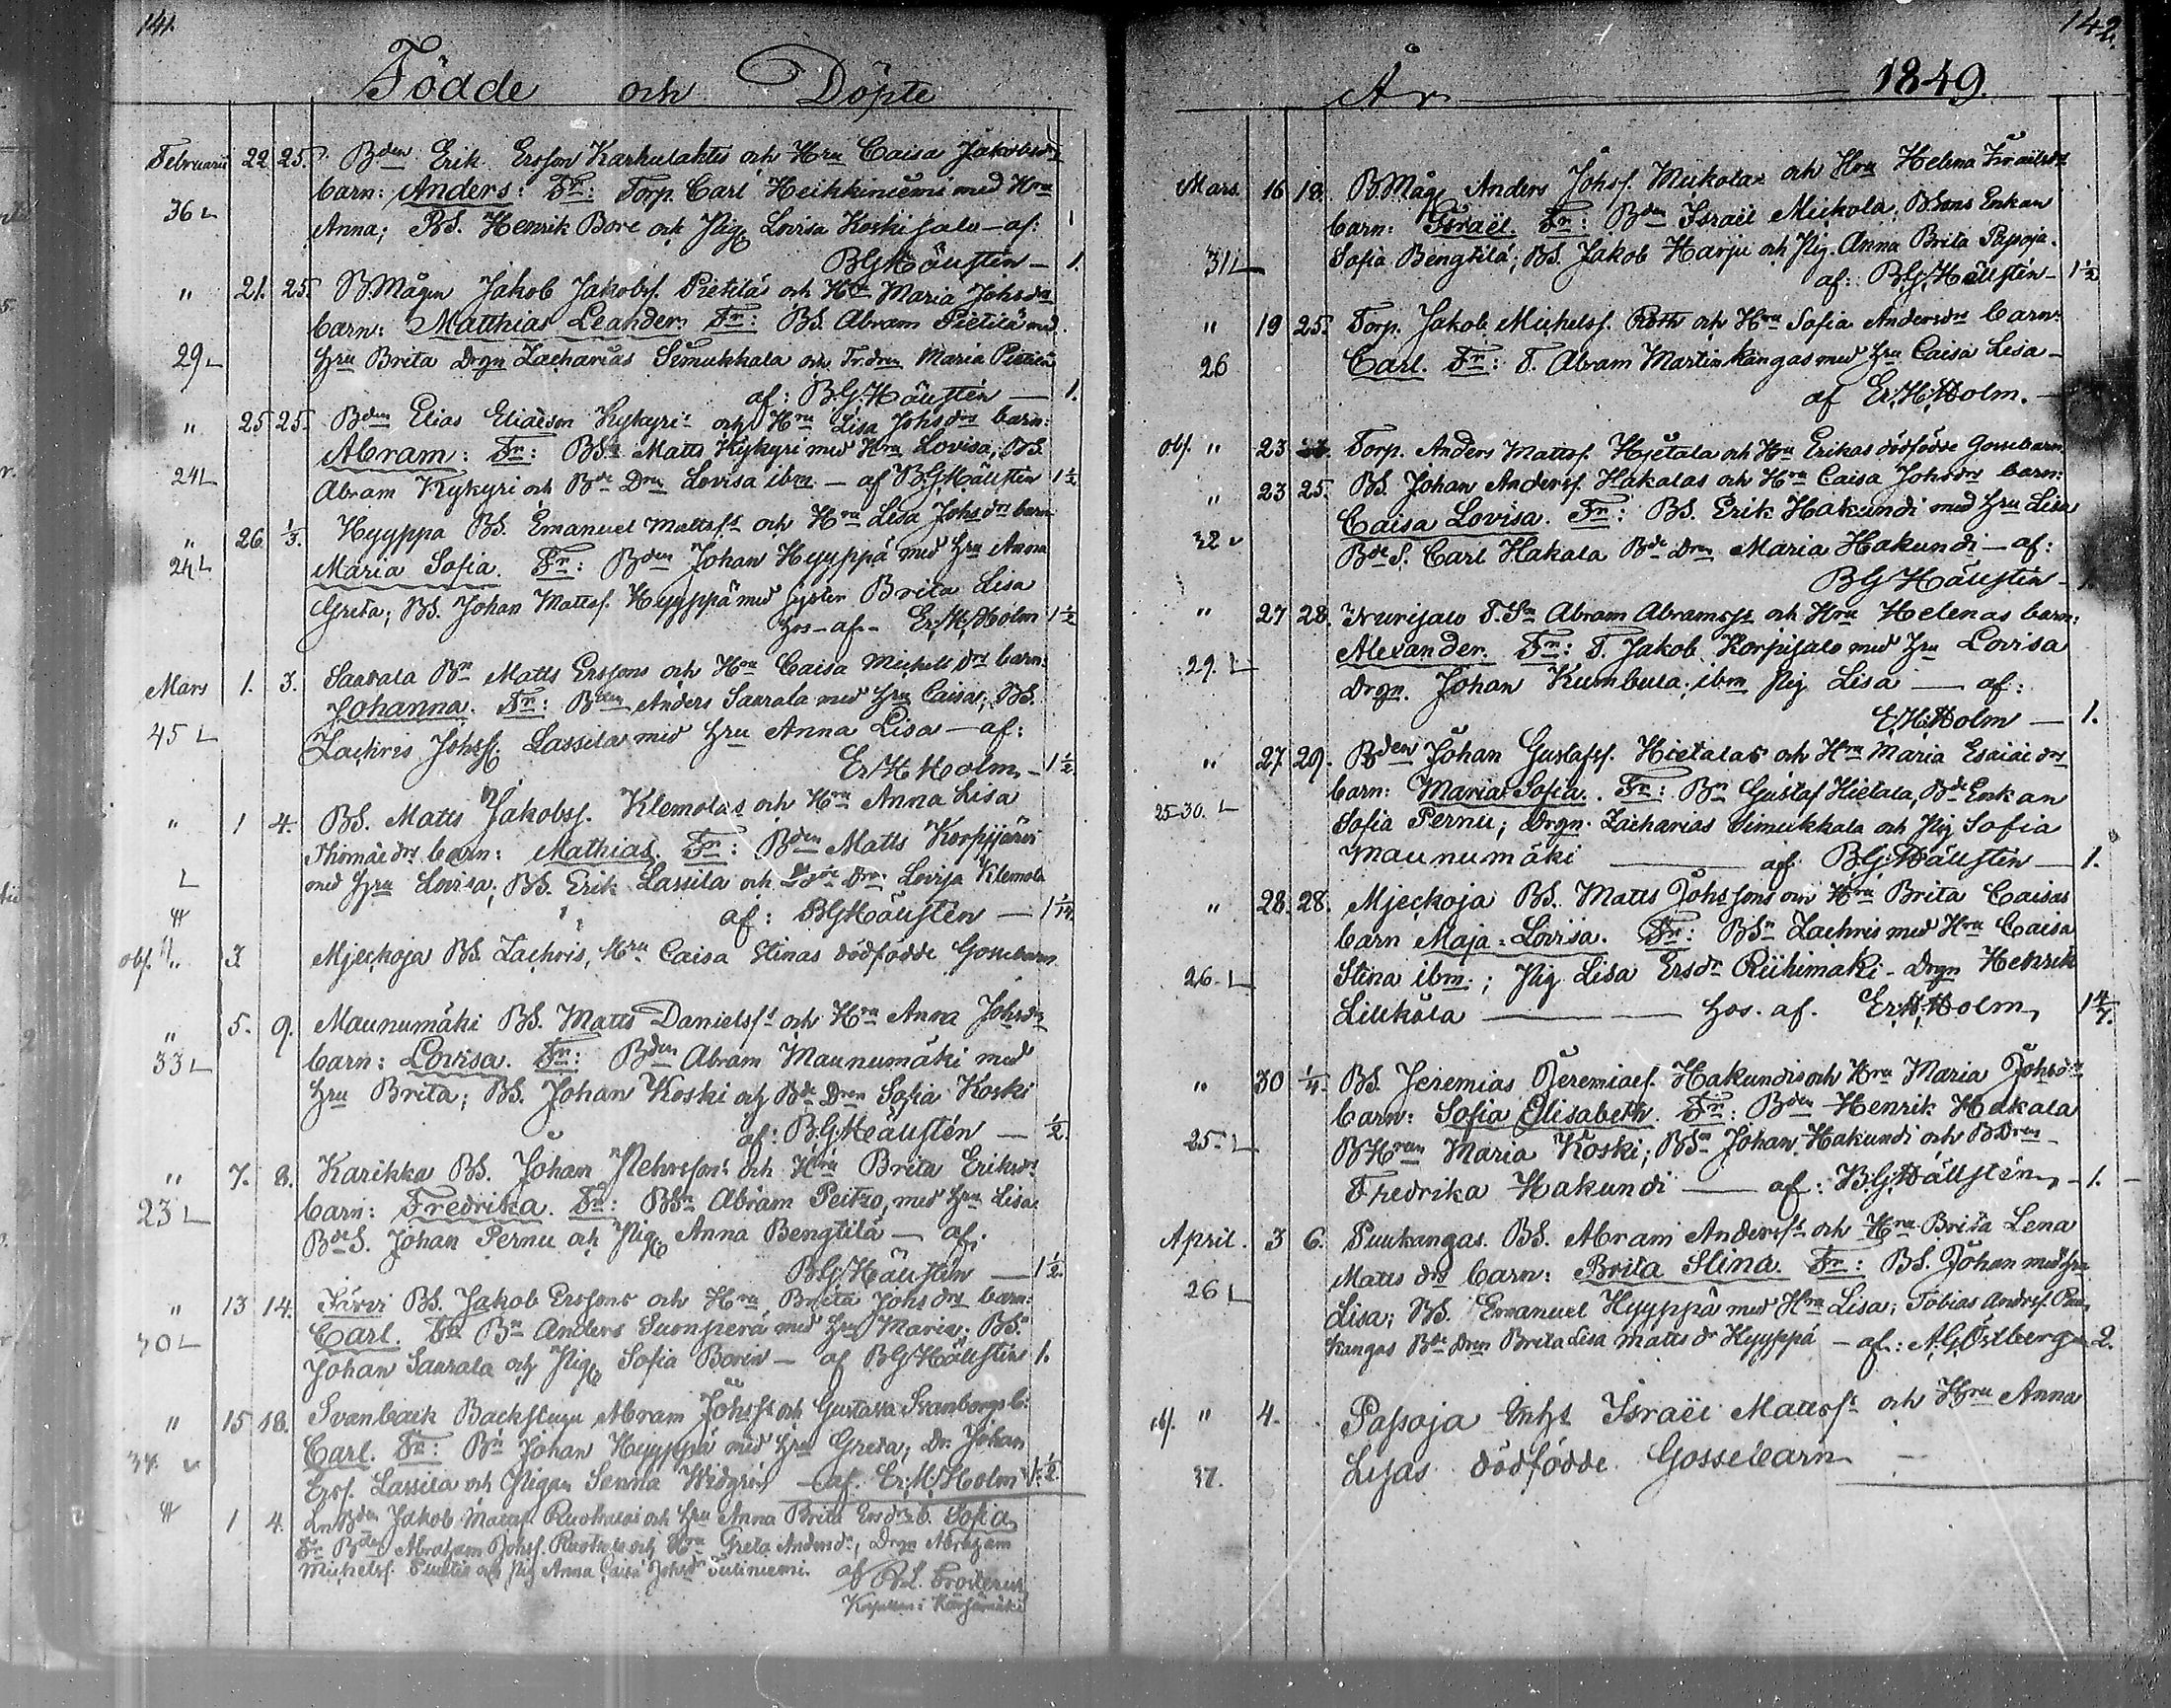 141.
Födde och Döpte
Februarii 22. 25. Bden Erik Ersson Karhulahtis och Hru Caisa Jakobsdrs
barn: Anders: Fr: Torp. Carl Heikkiniemi med Hru
36 L
Anna; BS. Henrik Bore och Pig. Lovisa Koskisalo – af:
BG Hällsten – 1.
" 21. 25. B.Mågen Jakob Jakobss. Pietiläs och Hru Maria Johsdrs
barn: Matthias Leander. Fr: BS. Abram Pietilä med
29 L
hru Brita Drgn Zacharias Simukkala och Maria Pietilä
af: B.G. Hällstén — 1.
" 25 25. Bden Elias Eliasson Kykyris och Hru Lisa Johsdrs barn:
Abram: Fr: BSn Matts Kykyri med Hru Lovisa; BS.
24 L
Abram Kykyri och Bde Drn Lovisa ibm – af B.G Hällsten 1½
" 26. 1/3. Hyyppä BS. Emanuel Mattsss och Hru Lisa Johsdrs barn
24 L
Maria Sofia. Fr: Bden Johan Hyyppä med hru Anna
Greta; BS. Johan Mattss. Hyyppä med syster Brita Lisa
hos – af – Er. H. Holm 1½
Mars 1. 3. Saarala Bn Matts Erssons och Hru Caisa Michelsdrs barn:
Johanna. Fr: Bden Anders Saarala med hru Caisa; BS.
45 L
Zachris Johss. Lassila med hru Anna Lisa – af:
Er H Holm – 1½
" 1 4. BS. Matts Jakobss. Klemolas och Hru Anna Lisa
Thomædrs barn: Mathias. Fr: Bden Matts Korpijärvi
L
med hru Lovisa; BS. Erik Lassila och Drn Lovisa Klemola
af: BG Hällsten —
obs. " 3 Mjeckoja BS. Zachris, Hru Caisa Stinas dödfödde Gossebarn
" 5. 9. Maunumäki BS. Matts Danielsss och Hru Anna Johsdrs
33 L
barn: Lovisa. Fr: Bden Abram Maunumäki med
hru Brita; BS. Johan Koski och Bde Drn Sofia Koski
af: B.G. Hällstén — ½.
" 7. 8. Karikka BS. Johan Pehrssons och Hru Brita Eriksdrs
23 L
barn: Fredrika. Fr: BSn Abram Peitzo, med hru Lisa
BdeS. Johan Pernu och Pig. Anna Bengtilä – af:
B.G. Hällsten — 1½.
" 13 14. Järvi BS. Jakob Erssons och Hru Brita Johsdrs barn:
30 L
Carl. Fr Bn Anders Suonperä med hru Maria; BSn
Johan Saarala och Pig. Sofia Borin – af BG Hällsten 1.
" 15 18. Svanback Backstugu Abram Johsss och Gustava Svanborgs b:
Carl. Fr: Bn Johan Hyyppä med hru Greta; Dr. Johan
34.
Erss. Lassila och Pigan Senna Widgrén – af. Er. H. Holm 1½
1 4. Bden Jakob Matss. och hru Anna Brita Ersdrs b. Sofia
Fr Bden Abraham Johss. och Hru Greta Andersdr, Drgn Abraham
Michelss. och Pig Anna Caisa Johsdr Tuliniemi. af
142.
År — 1849.
Mars. 16 18. B.Måg Anders Johss. Mickolas och Hru Helena Israelsdrs
barn: Israel. Fr: Bden Israel Mickola; BSons Enkan
31 L
Sofia Bengtilä; BS. Jakob Harju och Pig. Anna Brita Passoja.
af: B.G. Hällstén – 1½
" 19 25. Torp. Jakob Michelss. Roths och Hru Sofia Andersdrs barn:
26
Carl. Fr: T. Abram Martinkangas med hru Caisa Lisa –
af Er. H. Holm. –
obs. " 23 Torp. Anders Mattss. Hjetala och Hru Erikas dödfödde Gossebarn
" 23 25. BS. Johan Anderss. Hakalas och Hru Caisa Johsdrs barn:
32
Caisa Lovisa. Fr: BS. Erik Hakundi med hru Lisa
BdeS. Carl Hakala Bde Drn Maria Hakundi – af:
BG Hällsten –
" 27 28. Nurisalo T.Sn Abram Abramsss och Hru Helenas barn:
29. L
Alexander. Fr: T. Jakob Korpisalo med hru Lovisa
Drgn. Johan Kumbula, ibm Pig Lisa — af:
E.H. Holm — 1.
" 27 29. Bden Johan Gustafss. Hietalas och Hru Maria Esaiædrs
25–30. L
barn: Maria Sofia. Fr: Bn Gustaf Hietala, Bde Enkan
Sofia Pernu; Drgn. Zacharias Simukkala och Pig Sofia
Maunumäki — af B.G. Hällsten — 1.
" 28. 28. Mjeckoja BS. Matts Johssons och Hru Brita Caisas
barn Maja-Lovisa. Fr: BSn Zachris med Hru Caisa
26. L
Stina ibm.; Pig Lisa Ersdr Riihimäki – Drgn Henrik
Lillkåla — hos. af. Er. H. Holm,
" 30 1/4. BS. Jeremias Jeremiæs. Hakundis och Hru Maria Johsdrs
barn: Sofia Elisabeth. Fr: Bden Henrik Hakala
25. L
BHrun Maria Koski; BSn Johan Hakundi och BDrn
Fredrika Hakundi — af: B.G. Hällstén, – 1. –
April. 3 6. Puukangas. BS. Abram Andersss och Hru Brita Lena
26 L
Matts drs barn: Brita Stina. Fr: BS. Johan med hru
Lisa; BS. Emanuel Hyyppä med Hru Lisa; Tobias Andrss. Puu-
kangas Bde Drn Brita Lisa Mattsdr Hyyppä – af: A.G. Östberg 2.
obs. " 4. Passoja Israel Mattsss och Hru Anna
37.
Lisas dödfödde Gossebarn –